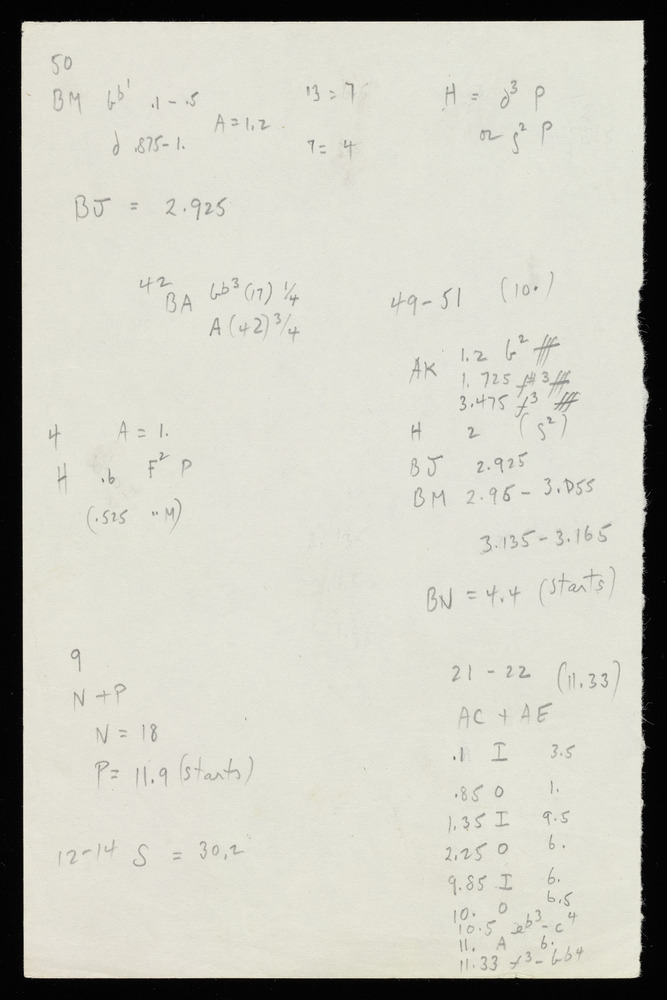 50
BM bb¹ .1-.5
A=1.2
d .875-1.
13=7
7=4
H = d³ P
or g² P
BJ = 2.925
42
BA bb³(17) 1/4
A(42) 3/4
4 A=1.
H .6 F² P
(.525 "M)
9
N+P
N=18
P= 11.9 (starts)
12-14 S = 30,2
49-51 (10.)
AK 1.2 b²
1.725 f#3
3.475 f³
H 2 (g²)
BJ 2.925
BM 2.95-3.055
3.135-3.165
BN = 4.4 (starts)
21-22 (11.33)
AC + AE
.1 I 3.5
.85 O 1.
1.35 I 9.5
2.25 O 6.
9.85 I 6.
10. O 6.5
10.5 eb³-c⁴
11. A 6.
11.33 f³-bb4